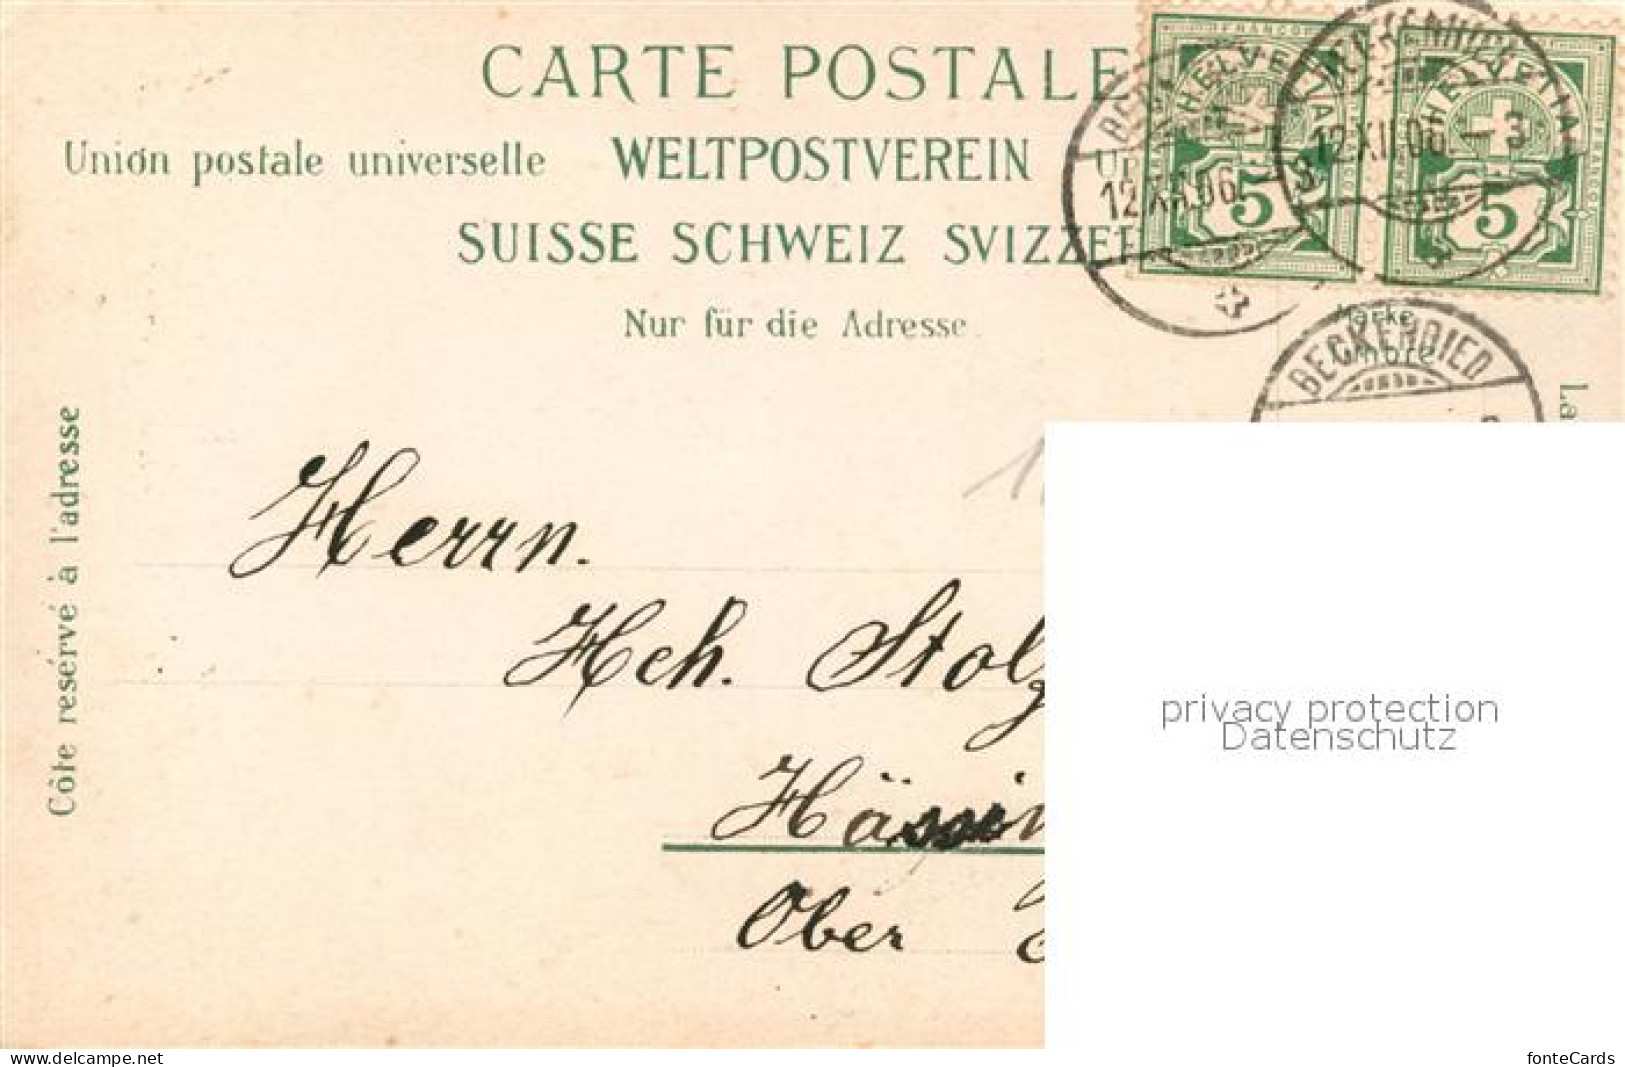 CARTE POSTALE
Union postale universelle WELTPOSTVEREIN
SUISSE SCHWEIZ SVIZZE
Nur für die Adresse.
HELVETIA
5
HELVETIA
5
12.XII.06.
12.XII.06. – 3
Marke
Timbre
BECKENRIED
Côte resérvé à l'adresse
Herrn.
Hch. Stolz
Ober
privacy protection
Datenschutz
www.delcampe.net
fonteCards